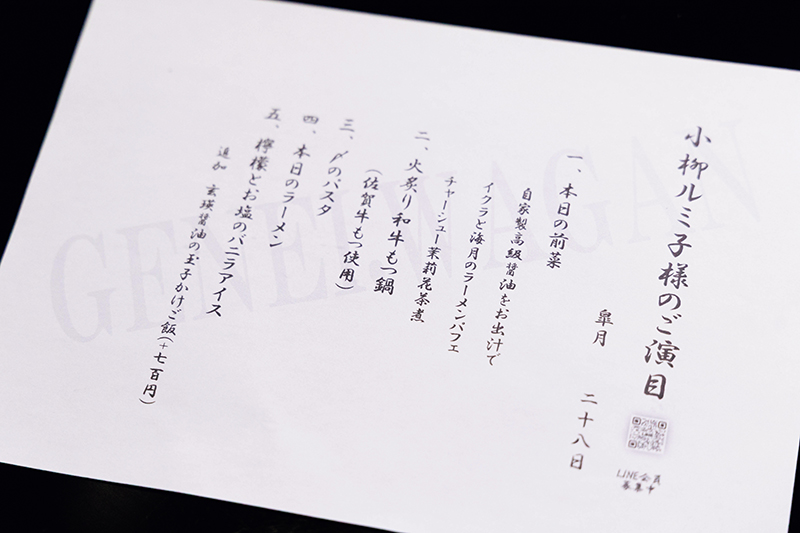 小柳ルミ子様のご演目
皐月 二十八日
一、本日の前菜
自家製高級醤油をお出汁で
イクラと海月のラーメンパフェ
チャーシュー茉莉花茶煮
二、火炙り和牛もつ鍋
（佐賀牛もつ使用）
三、〆のパスタ
四、本日のラーメン
五、檸檬とお塩のバニラアイス
追加 玄瑛醤油の玉子かけご飯（+七百円）
LINE会員
募集中
GENEIWAGAN